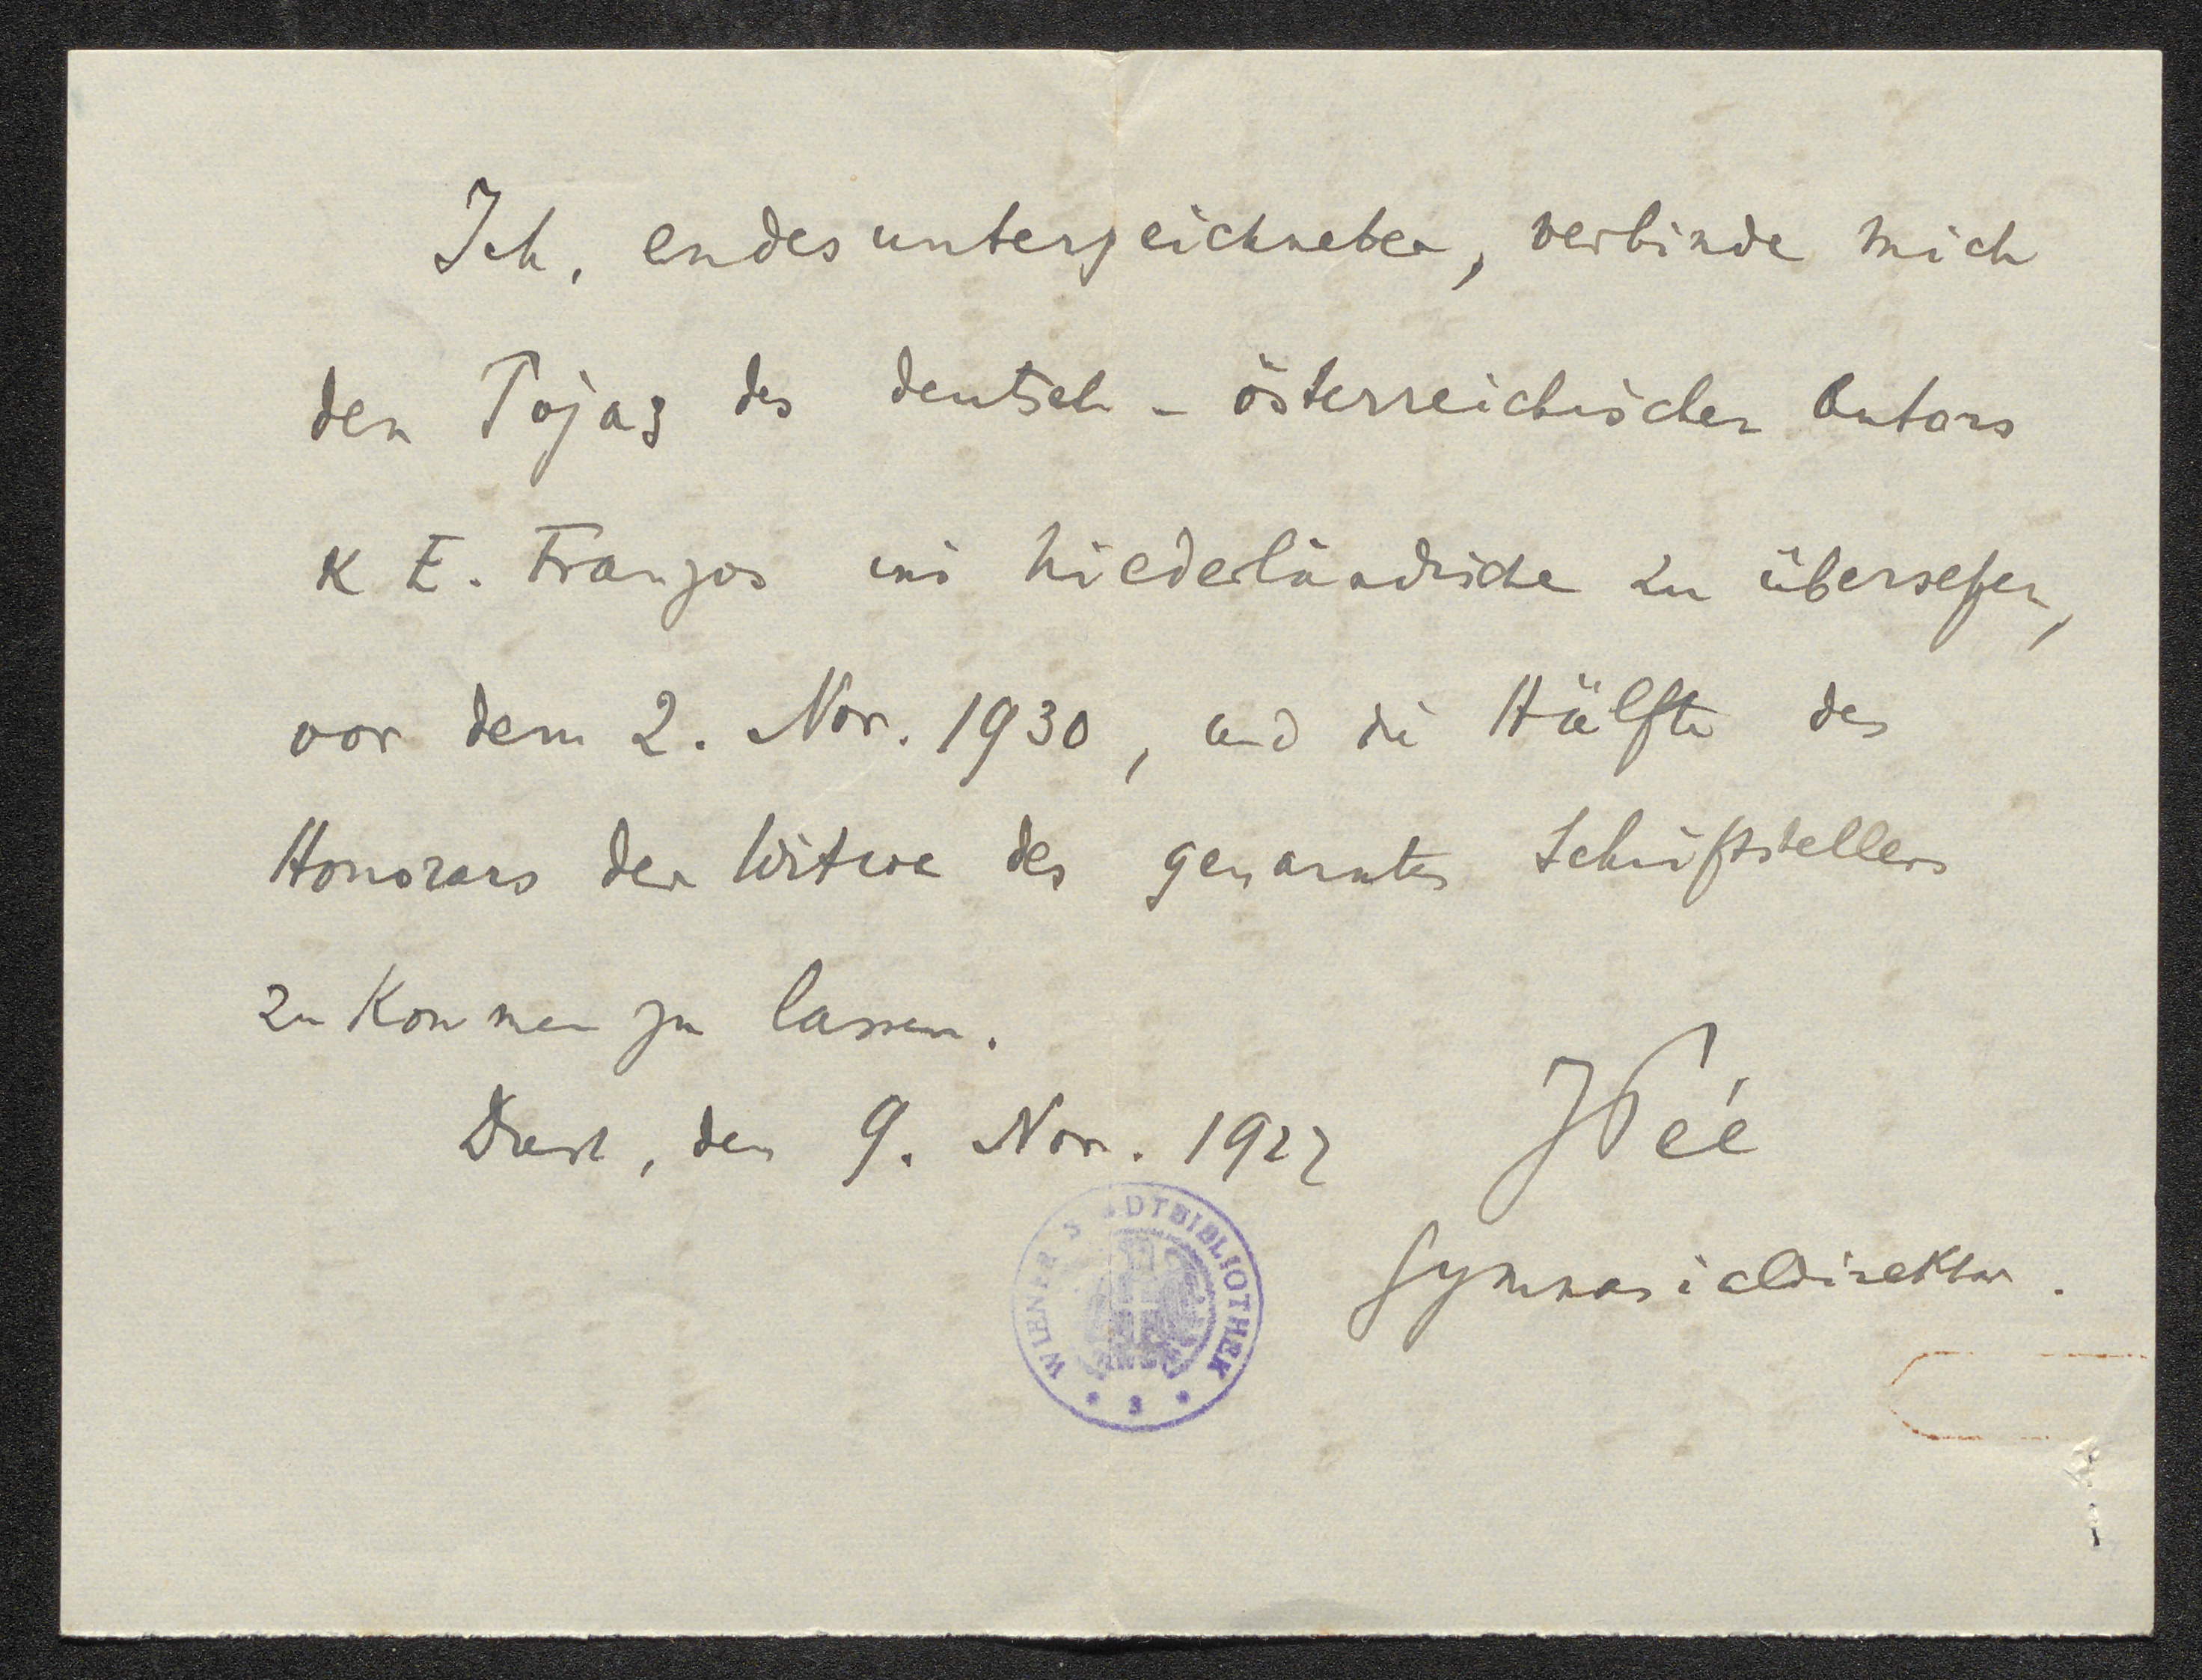 Ich, endesunterzeichneter, verbinde mich
den Pojaz des deutsch-österreichischen Autors
K E. Franzos ins Niederländische zu übersetzen,
vor dem 2. Nov. 1930, und die Hälfte des
Honorars der Witwe des genannten Schriftstellers
zu kommen zu lassen.
den 9. Nov. 1927
JPée
Gymnasialdirektor.
WIENER STADTBIBLIOTHEK